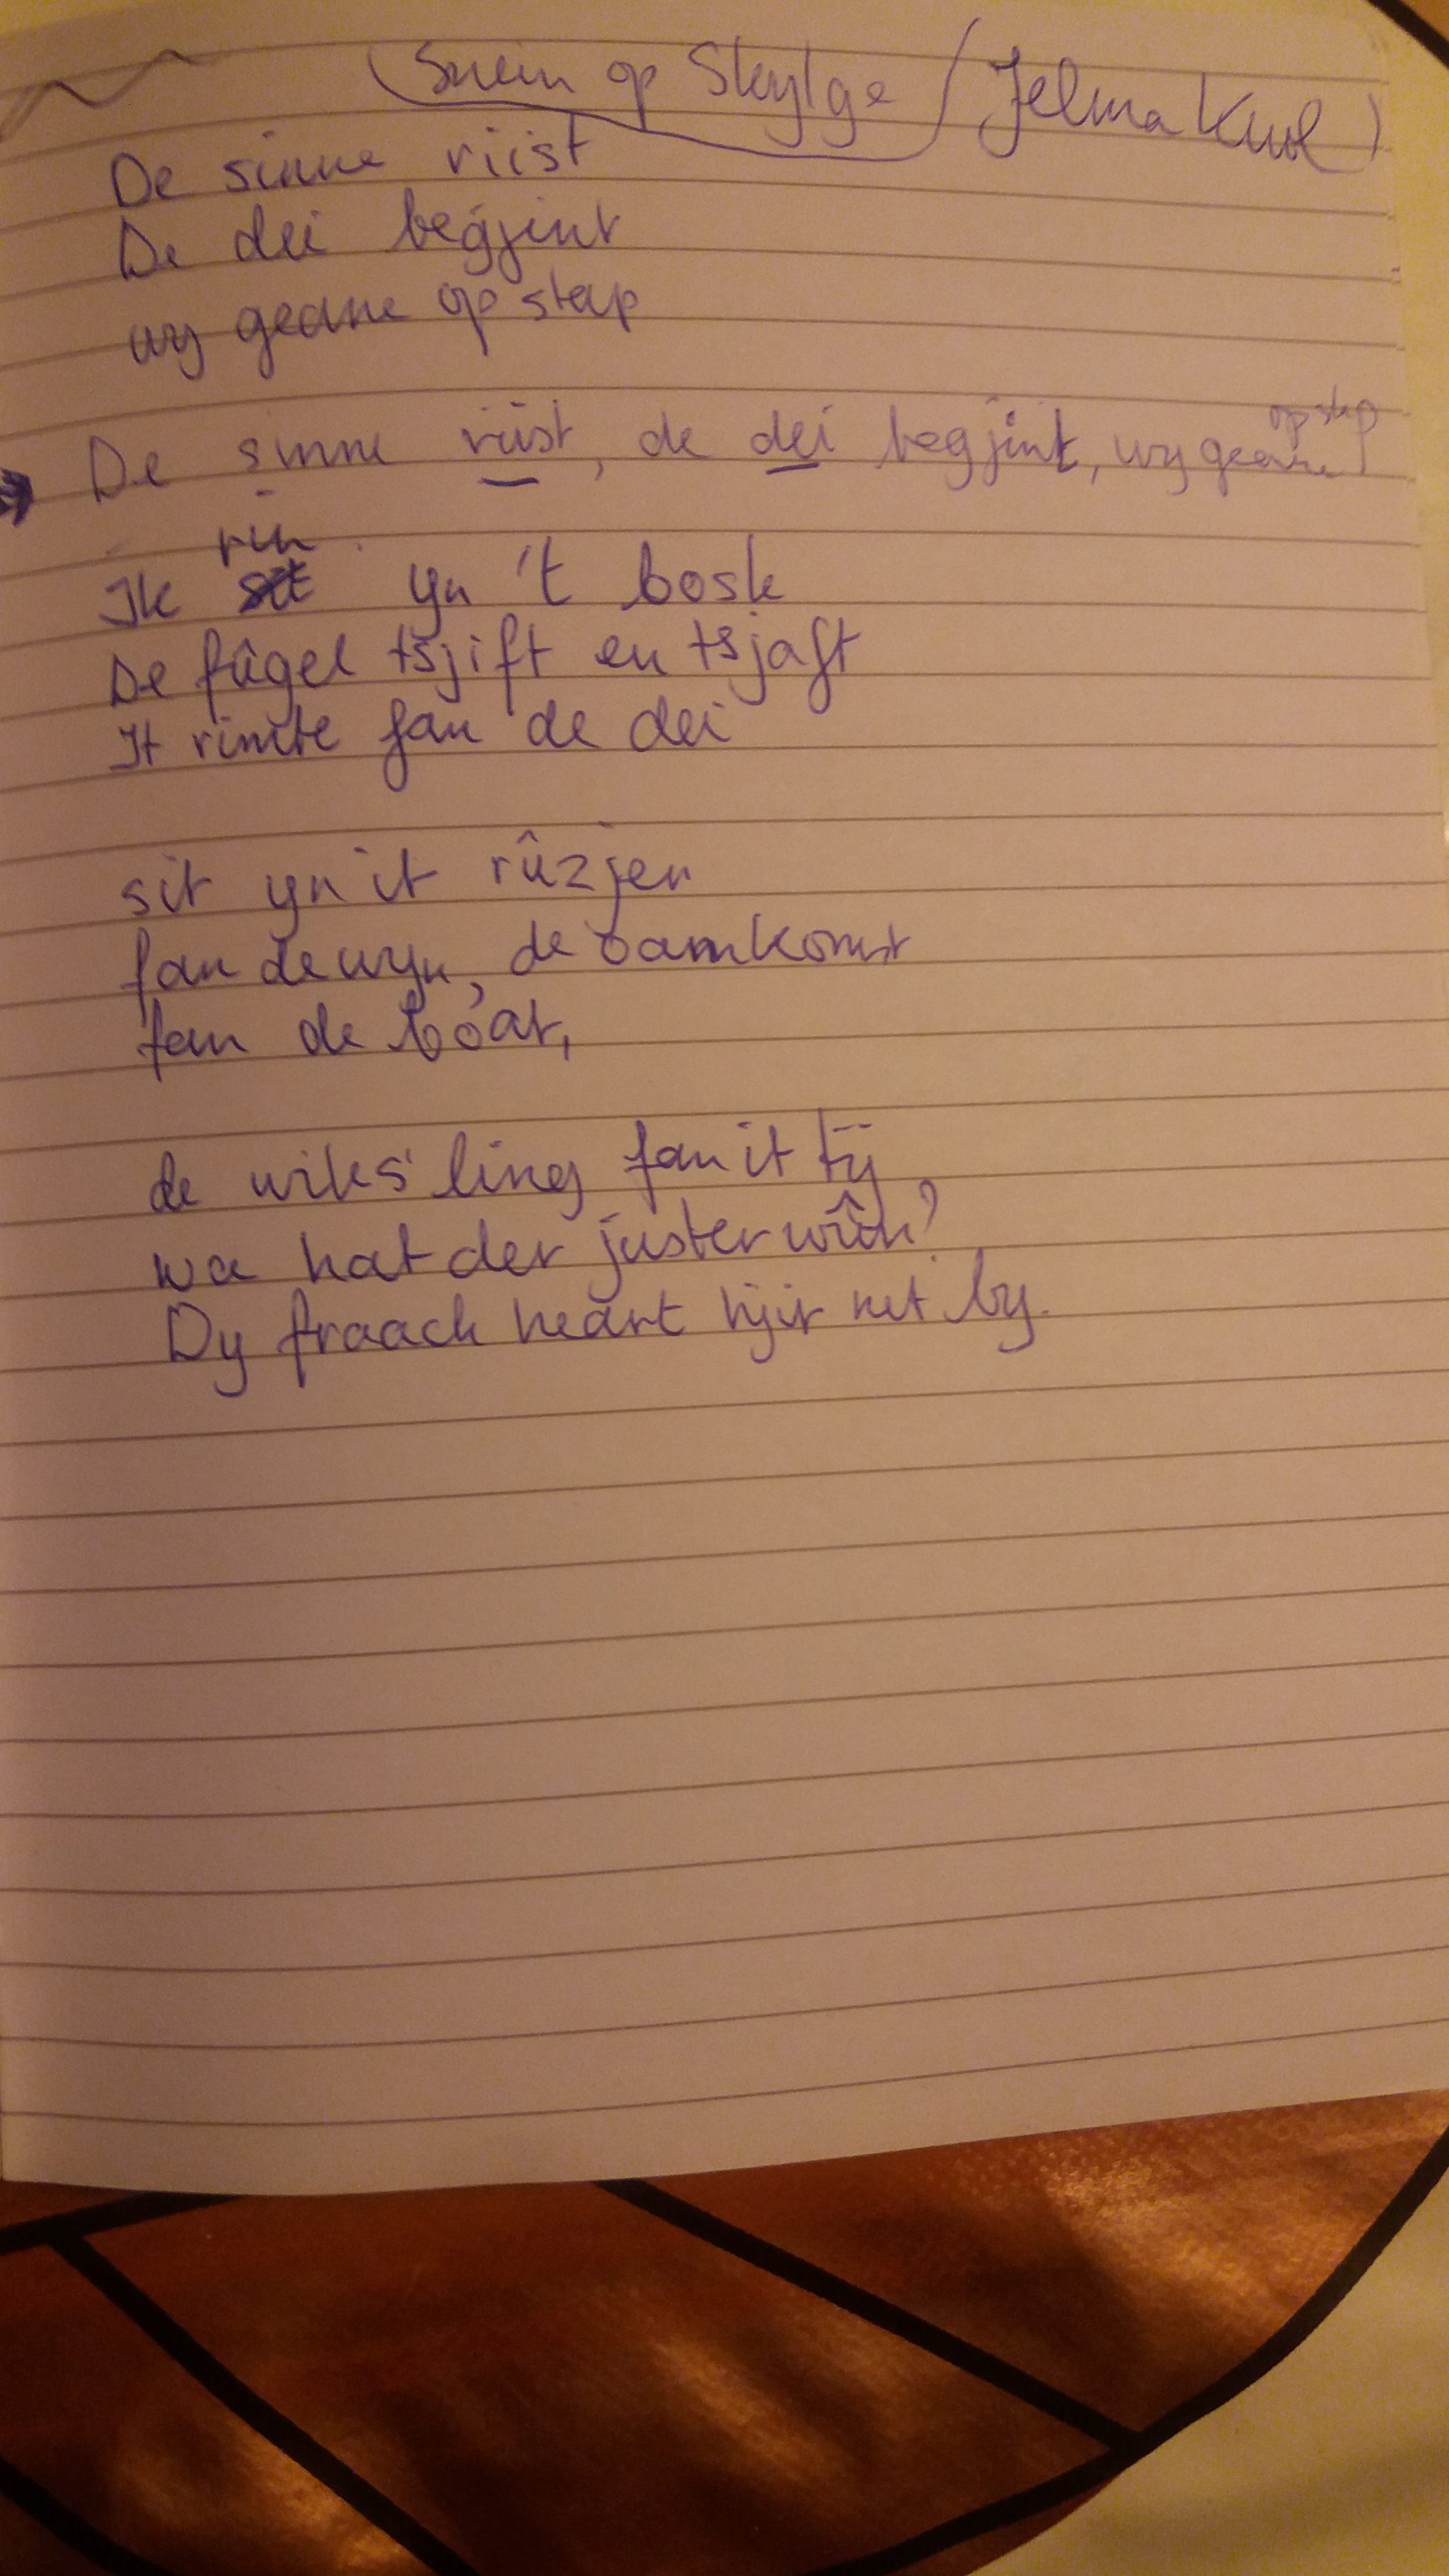 Snein op Skylge / Jelma Knol
De sinne riist
De dei begjint
wy geane op stap
De sinne riist, de dei begjint, wy geane op stap
rin
Ik sit yn 't bosk
De fûgel tsjift en tsjaft
It rimte fan de dei
sit yn it rûzjen
fan de wyn, de oankomst
fan de boat,
de wiksling fan it tij
wa hat der juster wûn?
Dy fraach heart hjir net by.